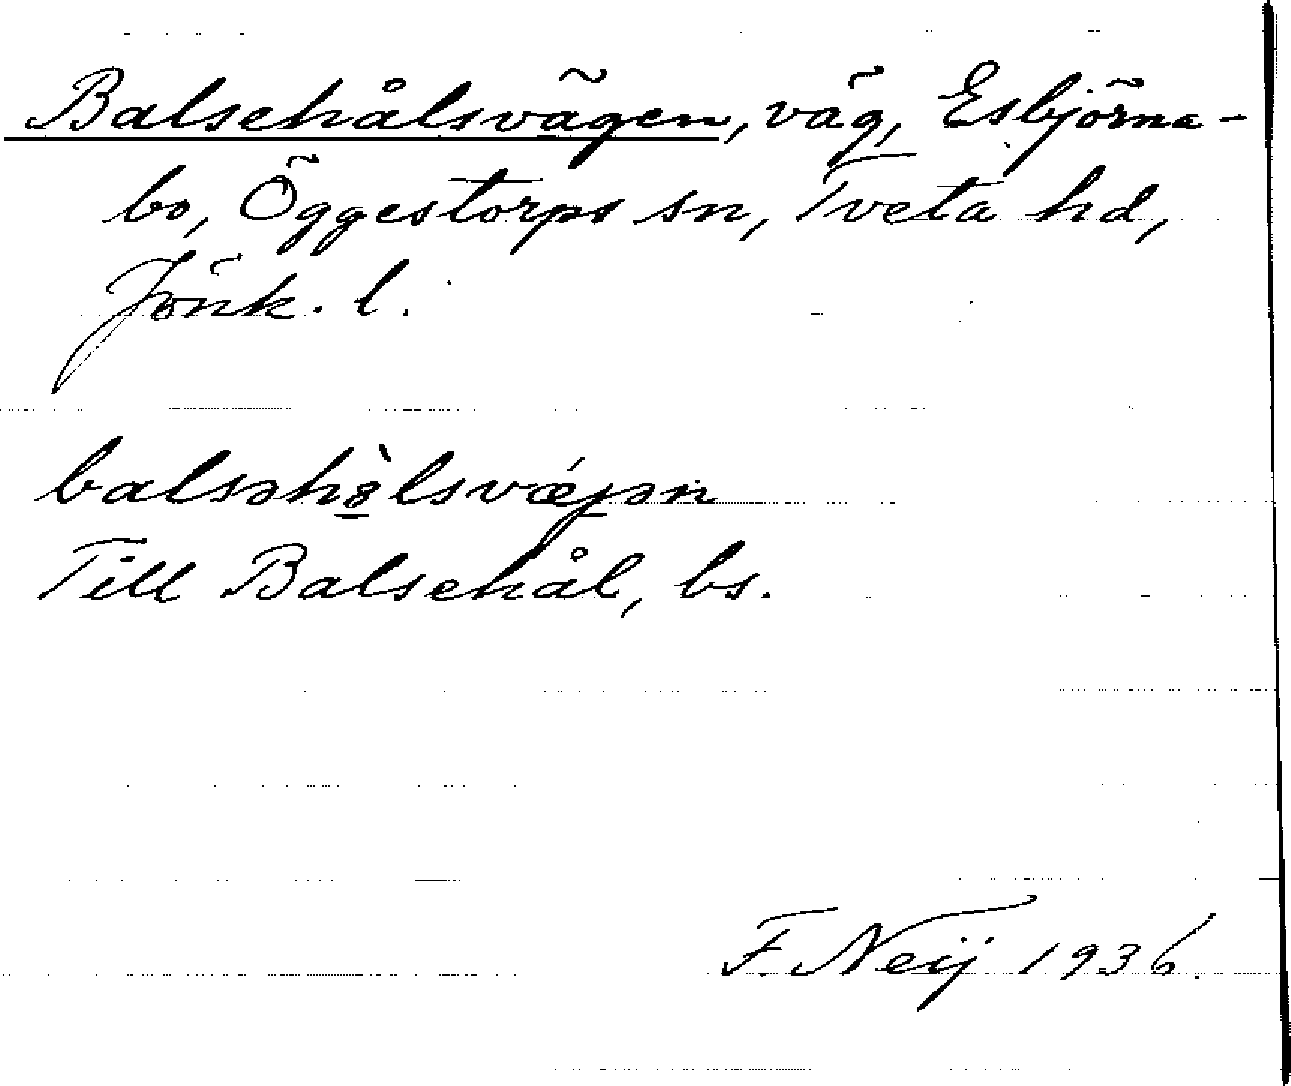 Balsehålsvägen, väg, Esbjörna-
bo, Öggestorps sn, Tveta hd,
Jönk. l.
balsəhò̱lsvǽjən
Till Balsehål, bs.
F. Neij 1936.